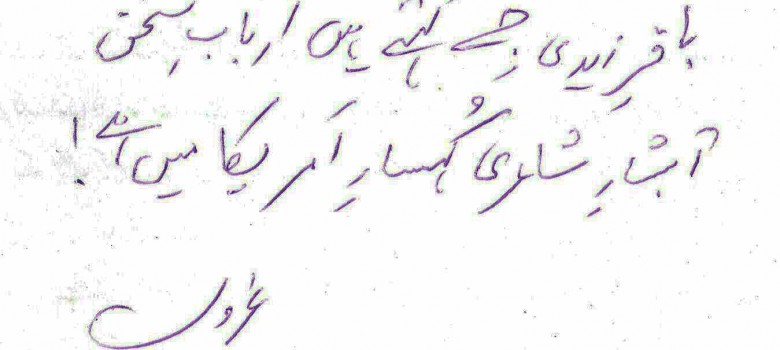 باقرِ زیدی جسے کہتے ہیں اربابِ سخن
آبشارِ شاعری کُہسارِ آمریکا میں ہے!